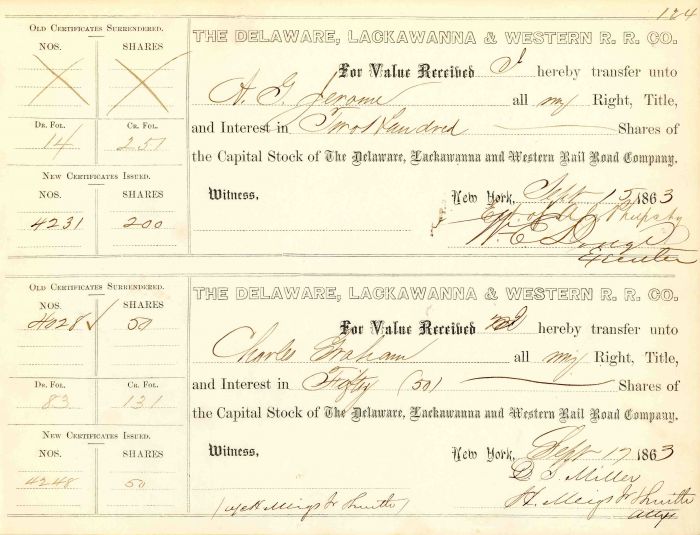 124
OLD CERTIFICATES SURRENDERED.
NOS. SHARES
DR. FOL. CR. FOL.
14 251
NEW CERTIFICATES ISSUED.
NOS. SHARES
4231 200
THE DELAWARE, LACKAWANNA & WESTERN R. R. CO.
For Value Received I hereby transfer unto
A. G. Jerome all my Right, Title,
and Interest in Two Hundred Shares of
the Capital Stock of The Delaware, Lackawanna and Western Rail Road Company.
Witness, New York, Sept 15 1863
Est. of A. G. Phelps by
W. E. Dodge
Executor
OLD CERTIFICATES SURRENDERED.
NOS. SHARES
4028 ✓ 50
DR. FOL. CR. FOL.
83 131
NEW CERTIFICATES ISSUED.
NOS. SHARES
4248 50
THE DELAWARE, LACKAWANNA & WESTERN R. R. CO.
For Value Received hereby transfer unto
Charles Graham all my Right, Title,
and Interest in Fifty (50) Shares of
the Capital Stock of The Delaware, Lackawanna and Western Rail Road Company.
Witness, New York, Sept 17 1863
D. S. Miller
H. Meigs Jr & Smith
Atty
Meigs Jr & Smith